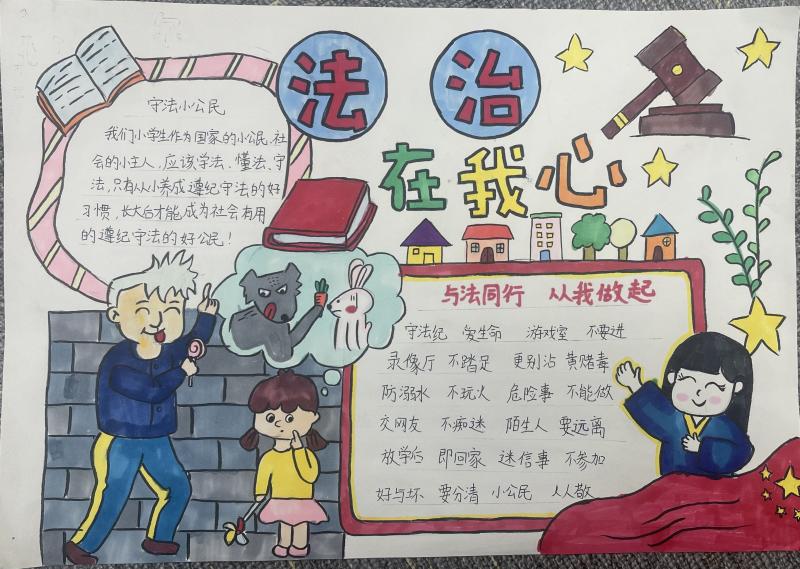 法治
在我心
守法小公民
我们小学生作为国家的小公民、社
会的小主人,应该学法、懂法、守
法,只有从小养成遵纪守法的好
习惯,长大后才能成为社会有用
的遵纪守法的好公民!
与法同行 从我做起
守法纪 爱生命 游戏室 不要进
录像厅 不踏足 更别沾 黄赌毒
防溺水 不玩火 危险事 不能做
交网友 不痴迷 陌生人 要远离
放学后 即回家 迷信事 不参加
好与坏 要分清 小公民 人人敬